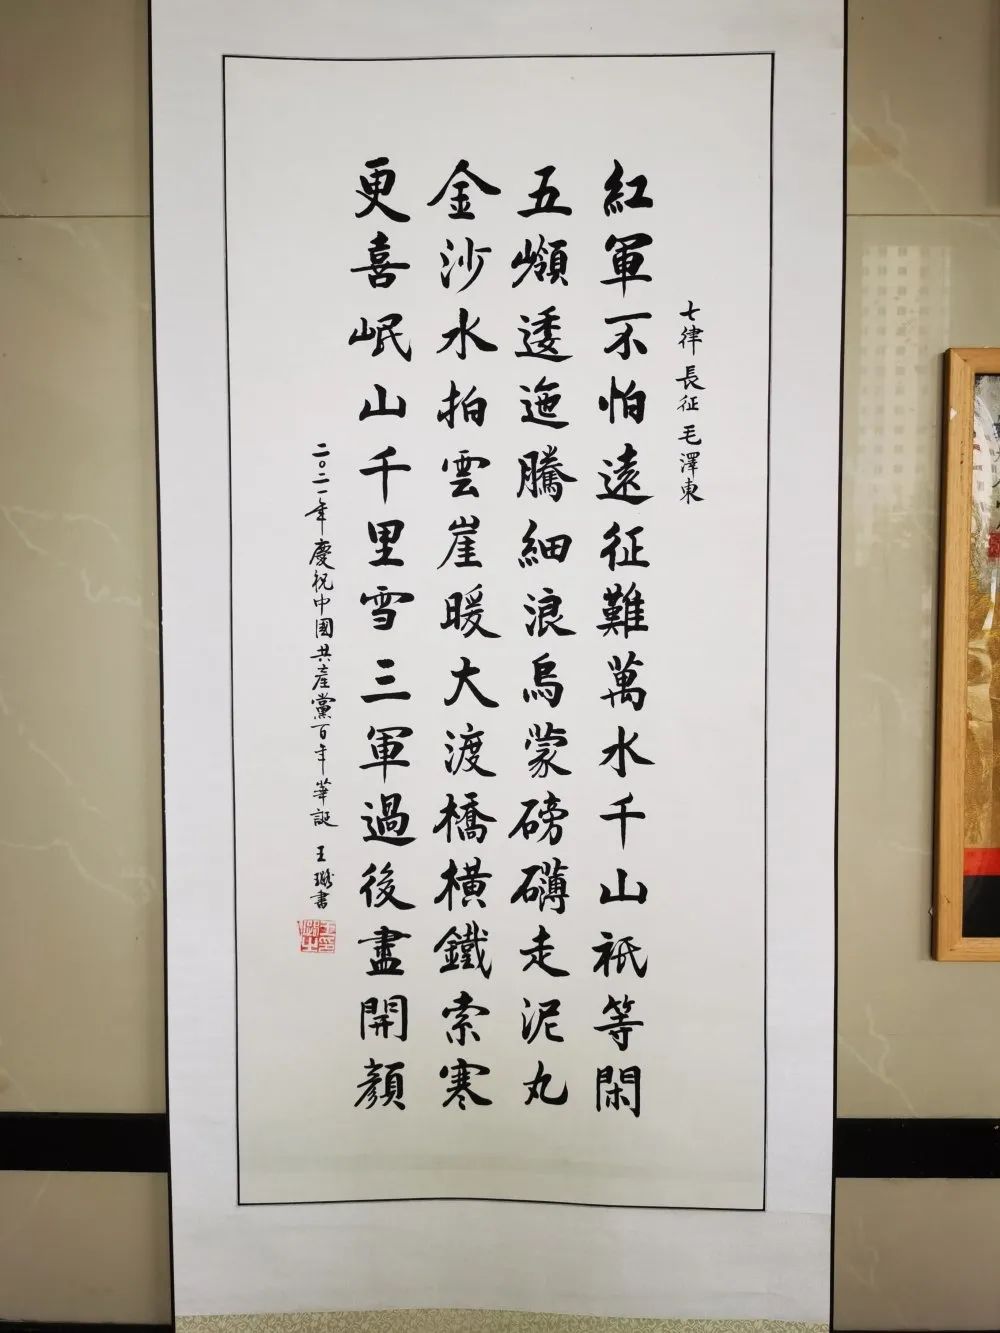 七律 長征 毛澤東
紅軍不怕遠征難萬水千山祇等閑
五嶺逶迤騰細浪烏蒙磅礴走泥丸
金沙水拍雲崖暖大渡橋橫鐵索寒
更喜岷山千里雪三軍過後盡開顏
二〇二一年慶祝中國共產黨百年華誕 王 書